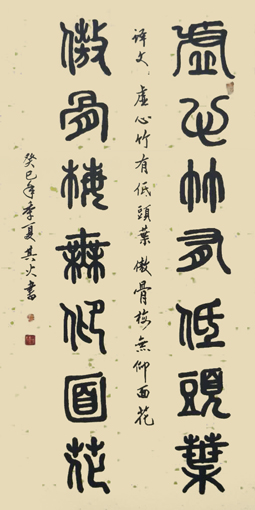 虚心竹有低頭葉
译文虚心竹有低頭葉傲骨梅無仰面花
傲骨梅無仰面花
癸巳年季夏其火書